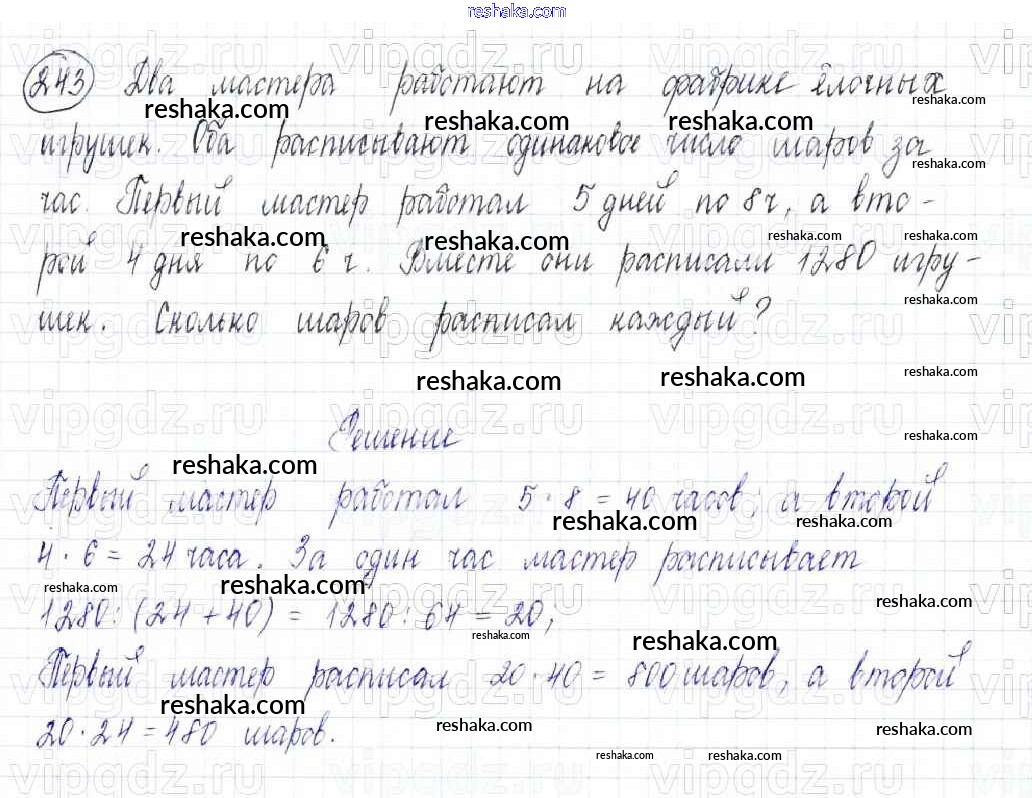 reshaka.com
243 Два мастера работают на фабрике ёлочных
игрушек. Оба расписывают одинаковое число шаров за
час. Первый мастер работал 5 дней по 8 ч, а вто-
рой 4 дня по 6 ч. Вместе они расписали 1280 игру-
шек. Сколько шаров расписал каждый?
Решение
Первый мастер работал 5 · 8 = 40 часов, а второй
4 · 6 = 24 часа. За один час мастер расписывает
1280 : (24 + 40) = 1280 : 64 = 20;
Первый мастер расписал 20 · 40 = 800 шаров, а второй
20 · 24 = 480 шаров.